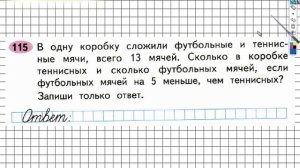 115 В одну коробку сложили футбольные и теннис-
ные мячи, всего 13 мячей. Сколько в коробке
теннисных и сколько футбольных мячей, если
футбольных мячей на 5 меньше, чем теннисных?
Запиши только ответ.
Ответ: